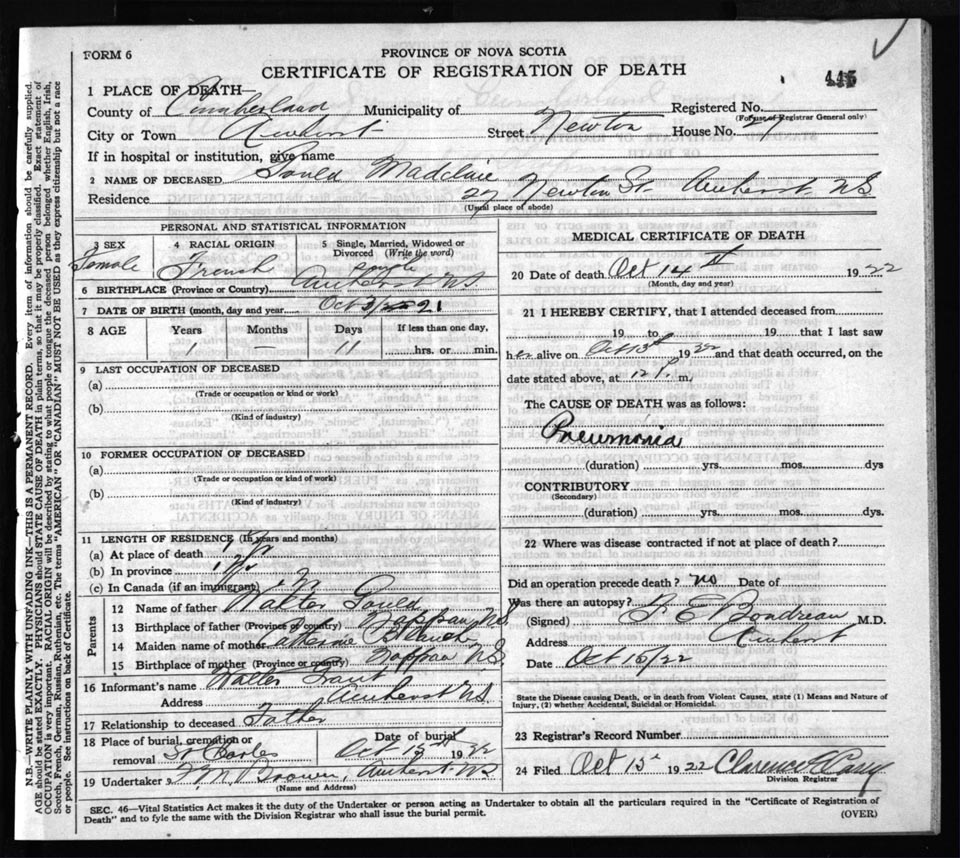 FORM 6
PROVINCE OF NOVA SCOTIA
CERTIFICATE OF REGISTRATION OF DEATH
445
1 PLACE OF DEATH—
County of Cumberland Municipality of Registered No.
(For use of Registrar General only)
City or Town Amherst Street Newton House No. 27
If in hospital or institution, give name
2 NAME OF DECEASED Gould Madeline
Residence 27 Newton St. Amherst NS
(Usual place of abode)
PERSONAL AND STATISTICAL INFORMATION
3 SEX 4 RACIAL ORIGIN 5 Single, Married, Widowed or Divorced (Write the word)
Female French Single
6 BIRTHPLACE (Province or Country) Amherst NS
7 DATE OF BIRTH (month, day and year Oct 3/21
8 AGE Years Months Days If less than one day,
1 11 hrs. or min.
9 LAST OCCUPATION OF DECEASED
(a)
(Trade or occupation or kind or work)
(b)
(Kind of industry)
10 FORMER OCCUPATION OF DECEASED
(a)
(Trade or occupation or kind of work)
(b)
(Kind of industry)
11 LENGTH OF RESIDENCE (In years and months)
(a) At place of death 1 yr
(b) In province 1 yr
(c) In Canada (if an immigrant)
Parents
12 Name of father Walter Gould
13 Birthplace of father (Province or country) Nappan NS
14 Maiden name of mother Catherine
15 Birthplace of mother (Province or country) Nappan NS
16 Informant's name Walter
Address Amherst NS
17 Relationship to deceased Father
18 Place of burial, cremation or removal St Charles Date of burial Oct 15th 1922
19 Undertaker F M Brown, Amherst NS
(Name and Address)
MEDICAL CERTIFICATE OF DEATH
20 Date of death Oct 14th 1922
(Month, day and year)
21 I HEREBY CERTIFY, that I attended deceased from
19 to 19 that I last saw
her alive on Oct 13th 1922 and that death occurred, on the
date stated above, at 12 P. m.
The CAUSE OF DEATH was as follows:
Pneumonia
(duration) yrs. mos. dys
CONTRIBUTORY
(Secondary)
(duration) yrs. mos. dys.
22 Where was disease contracted if not at place of death?
Did an operation precede death? no Date of
Was there an autopsy?
(Signed) E Boudreau M.D.
Address Amherst
Date Oct 15/22
State the Disease causing Death, or in death from Violent Causes, state (1) Means and Nature of
Injury, (2) whether Accidental, Suicidal or Homicidal.
23 Registrar's Record Number
24 Filed Oct 15 1922 Clarence Casey
Division Registrar
SEC. 46—Vital Statistics Act makes it the duty of the Undertaker or person acting as Undertaker to obtain all the particulars required in the "Certificate of Registration of
Death" and to fyle the same with the Division Registrar who shall issue the burial permit.
(OVER)
N.B.—WRITE PLAINLY WITH UNFADING INK—THIS IS A PERMANENT RECORD. Every item of information should be carefully supplied.
AGE should be stated EXACTLY. PHYSICIANS should STATE CAUSE OF DEATH in plain terms, so that it may be properly classified. Exact statement of
OCCUPATION is very important. RACIAL ORIGIN will be described by stating to what people or tongue the deceased person belonged whether English, Irish,
Scotch, French, German, Russian, Ruthenian, etc. The terms "AMERICAN" OR "CANADIAN" MUST NOT BE USED as they express citizenship but not a race
or people. See instructions on back of Certificate.